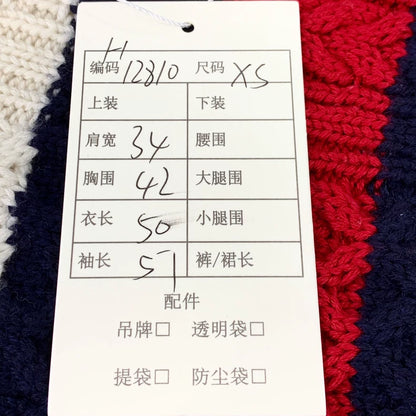 编码 H12810 尺码 XS
上装 下装
肩宽 34 腰围
胸围 42 大腿围
衣长 50 小腿围
袖长 51 裤/裙长
配件
吊牌□ 透明袋□
提袋□ 防尘袋□